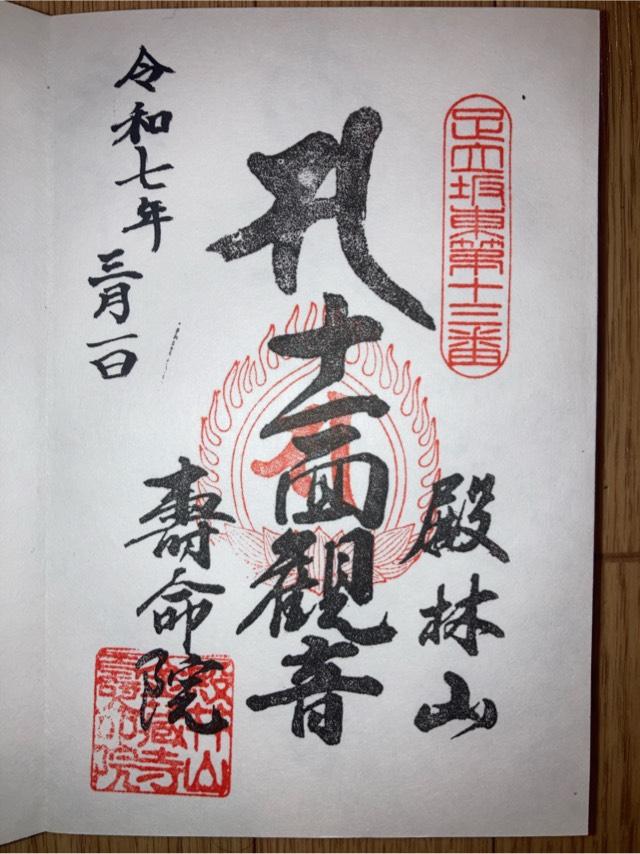 足立坂東第十三番
殿林山
十一面觀音
壽命院
令和七年
三月一日
殿林山
藏寺
壽命院